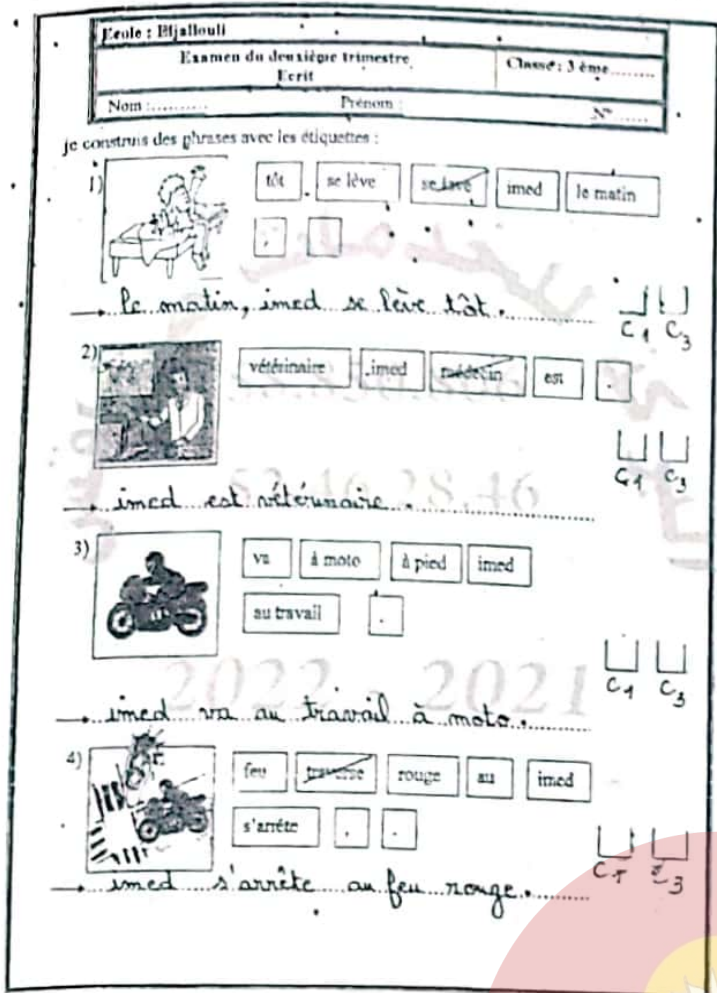 Ecole : Eljallouli
Examen du deuxième trimestre
Ecrit
Classe : 3 ème.........
Nom :..........
Prénom :
N° ......
je construis des phrases avec les étiquettes :
1)
tôt
se lève
se lave
imed
le matin
,
.
→ le matin, imed se lève tôt.
C1 C3
2)
vétérinaire
imed
médecin
est
.
C1 C3
→ imed est vétérinaire.
52.46.28.46
3)
va
à moto
à pied
imed
au travail
.
C1 C3
2022 2021
→ imed va au travail à moto.
4)
feu
traverse
rouge
au
imed
s'arrête
.
.
C1 C3
→ imed s'arrête au feu rouge.